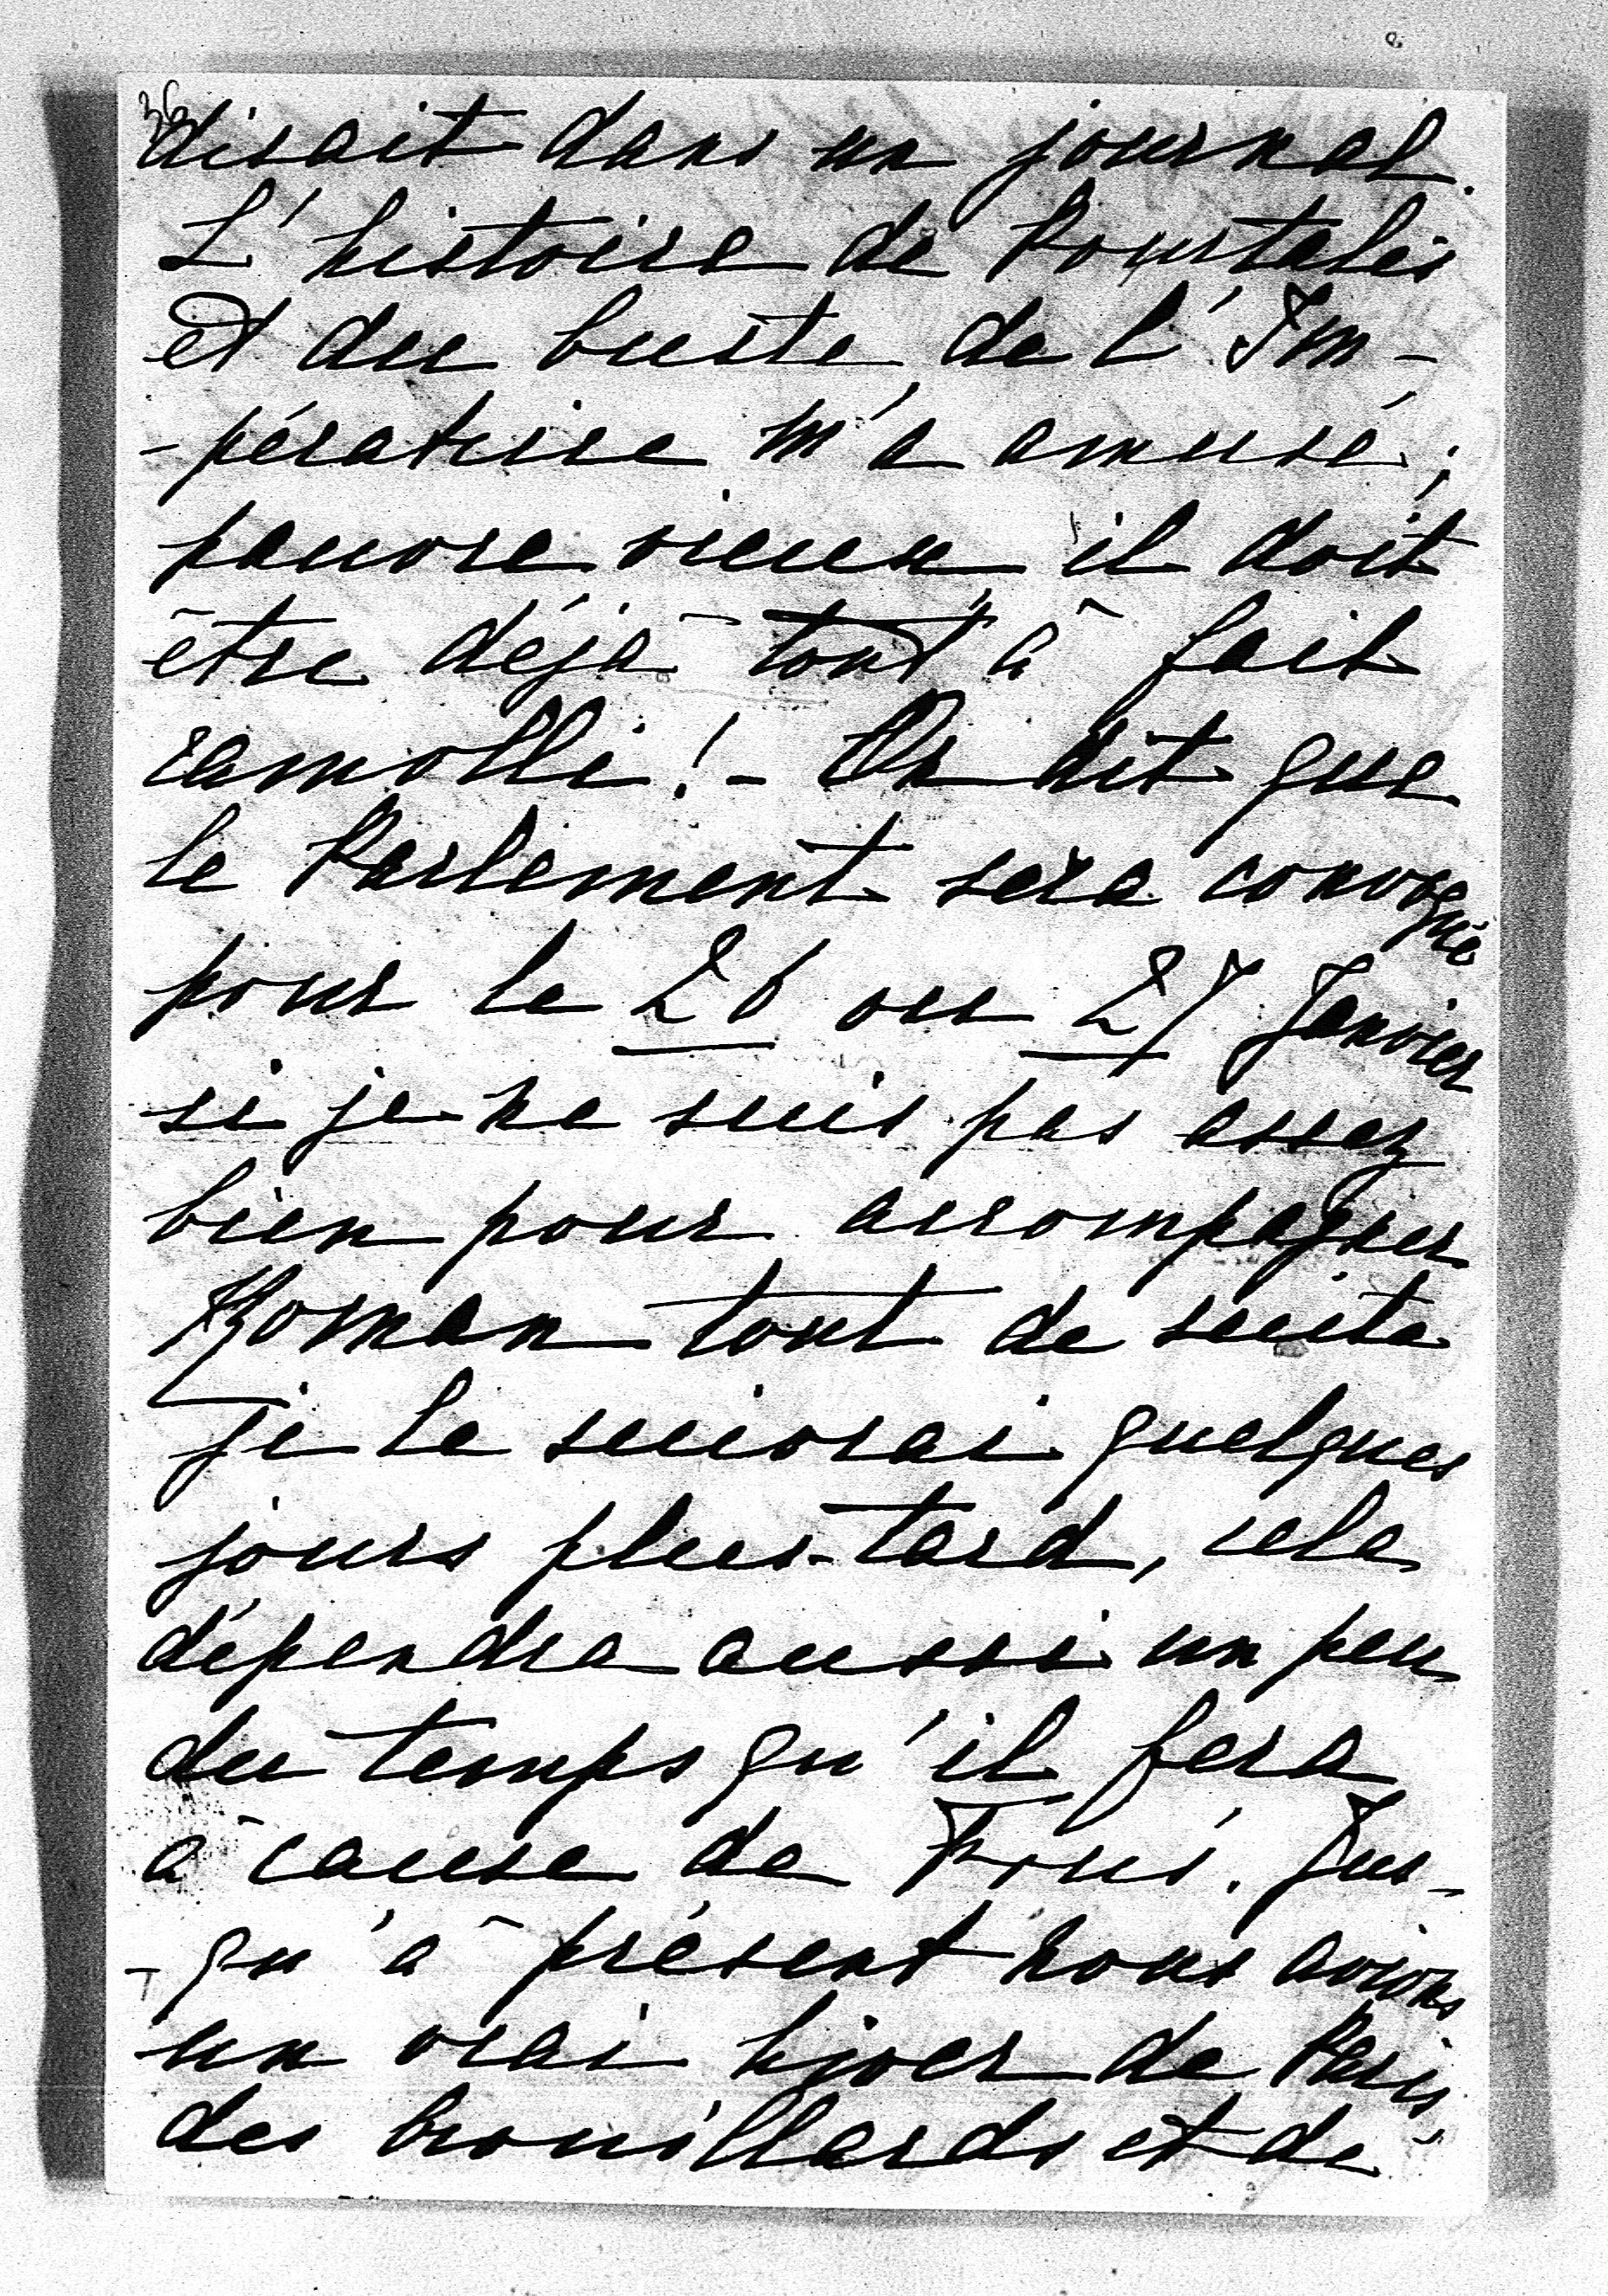 36
disait dans un journal.
L'histoire de Pourtalès
et du buste de l'Im-
-pératrice m'a amusé;
pauvre vieux, il doit
être déjà tout à fait
ramolli! - On dit que
le Parlement sera convoqué
pour le 26 ou 27 Janvier
si je ne suis pas assez
bien pour accompagner
Roman tout de suite
je le suivrai quelques
jours plus-tard, cela
dépendra aussi un peu
du temps qu'il fera
à cause de . Jus-
-qu'à présent nous avions
un vrai hiver de Paris
des brouillards et de